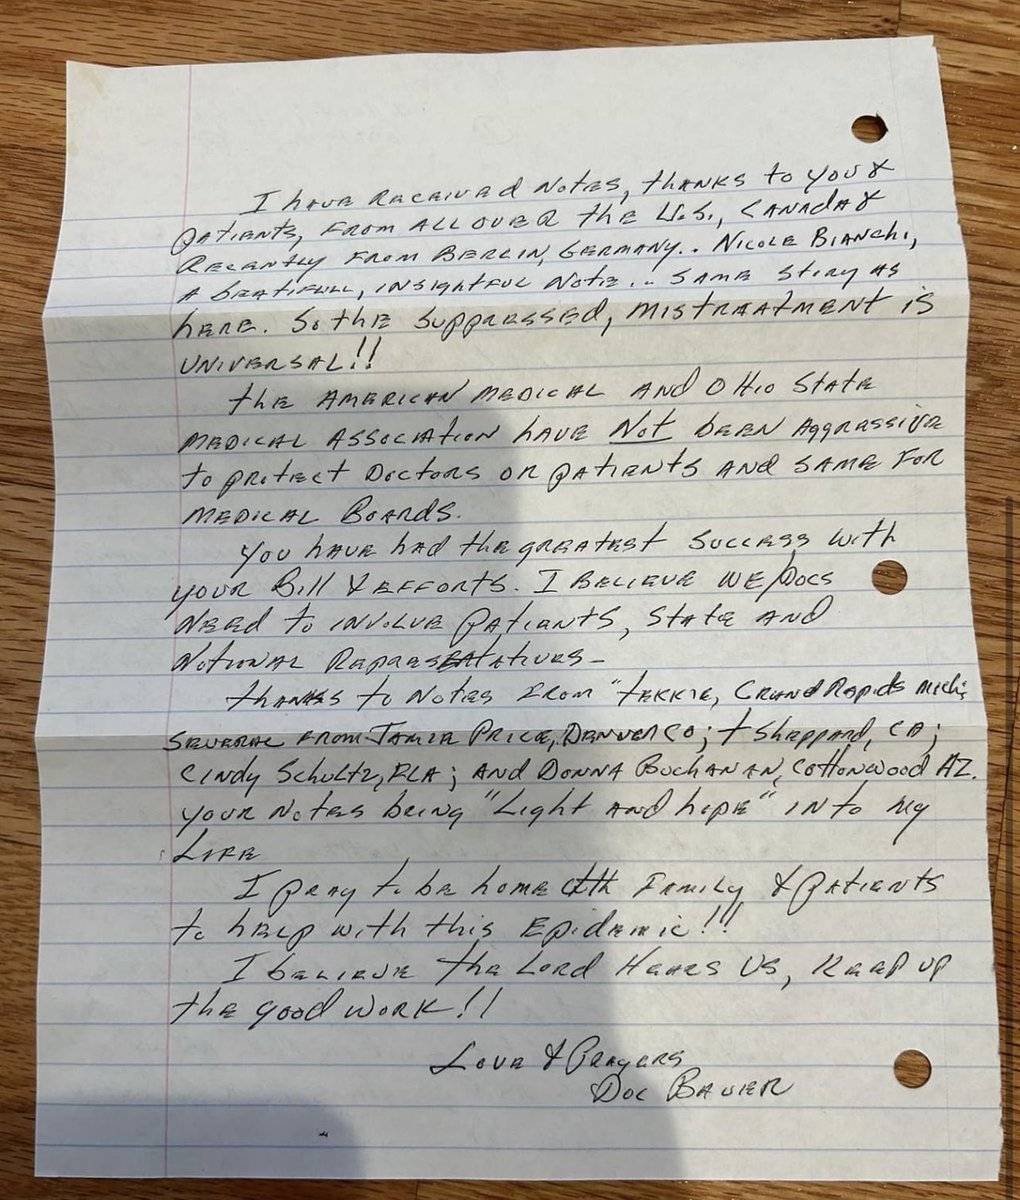 I have received notes, thanks to you &
patients, from all over the U.S., Canada &
recently from Berlin, Germany.. Nicole Bianchi,
a beatifull, insightful note... same story as
here. So the suppressed, mistreatment is
universal!!
The American Medical and Ohio State
Medical Association have Not been aggressive
to protect Doctors or patients and same for
Medical Boards.
You have had the greatest success with
your Bill & efforts. I believe we/Docs
need to involve patients, State and
National Representatives-
Thanks to notes from "Tekkie, Grand Rapids Mich;
several from Jamie Price, Denver Co; T Sheppard, CA;
Cindy Schultz, FLA; and Donna Buchanan, Cottonwood AZ.
Your notes bring "Light and hope" into my
Life
I pray to be home with Family & patients
to help with this Epidemic!!!
I believe the Lord Hears us, keep up
the good work!!
Love & Prayers
Doc Bauer